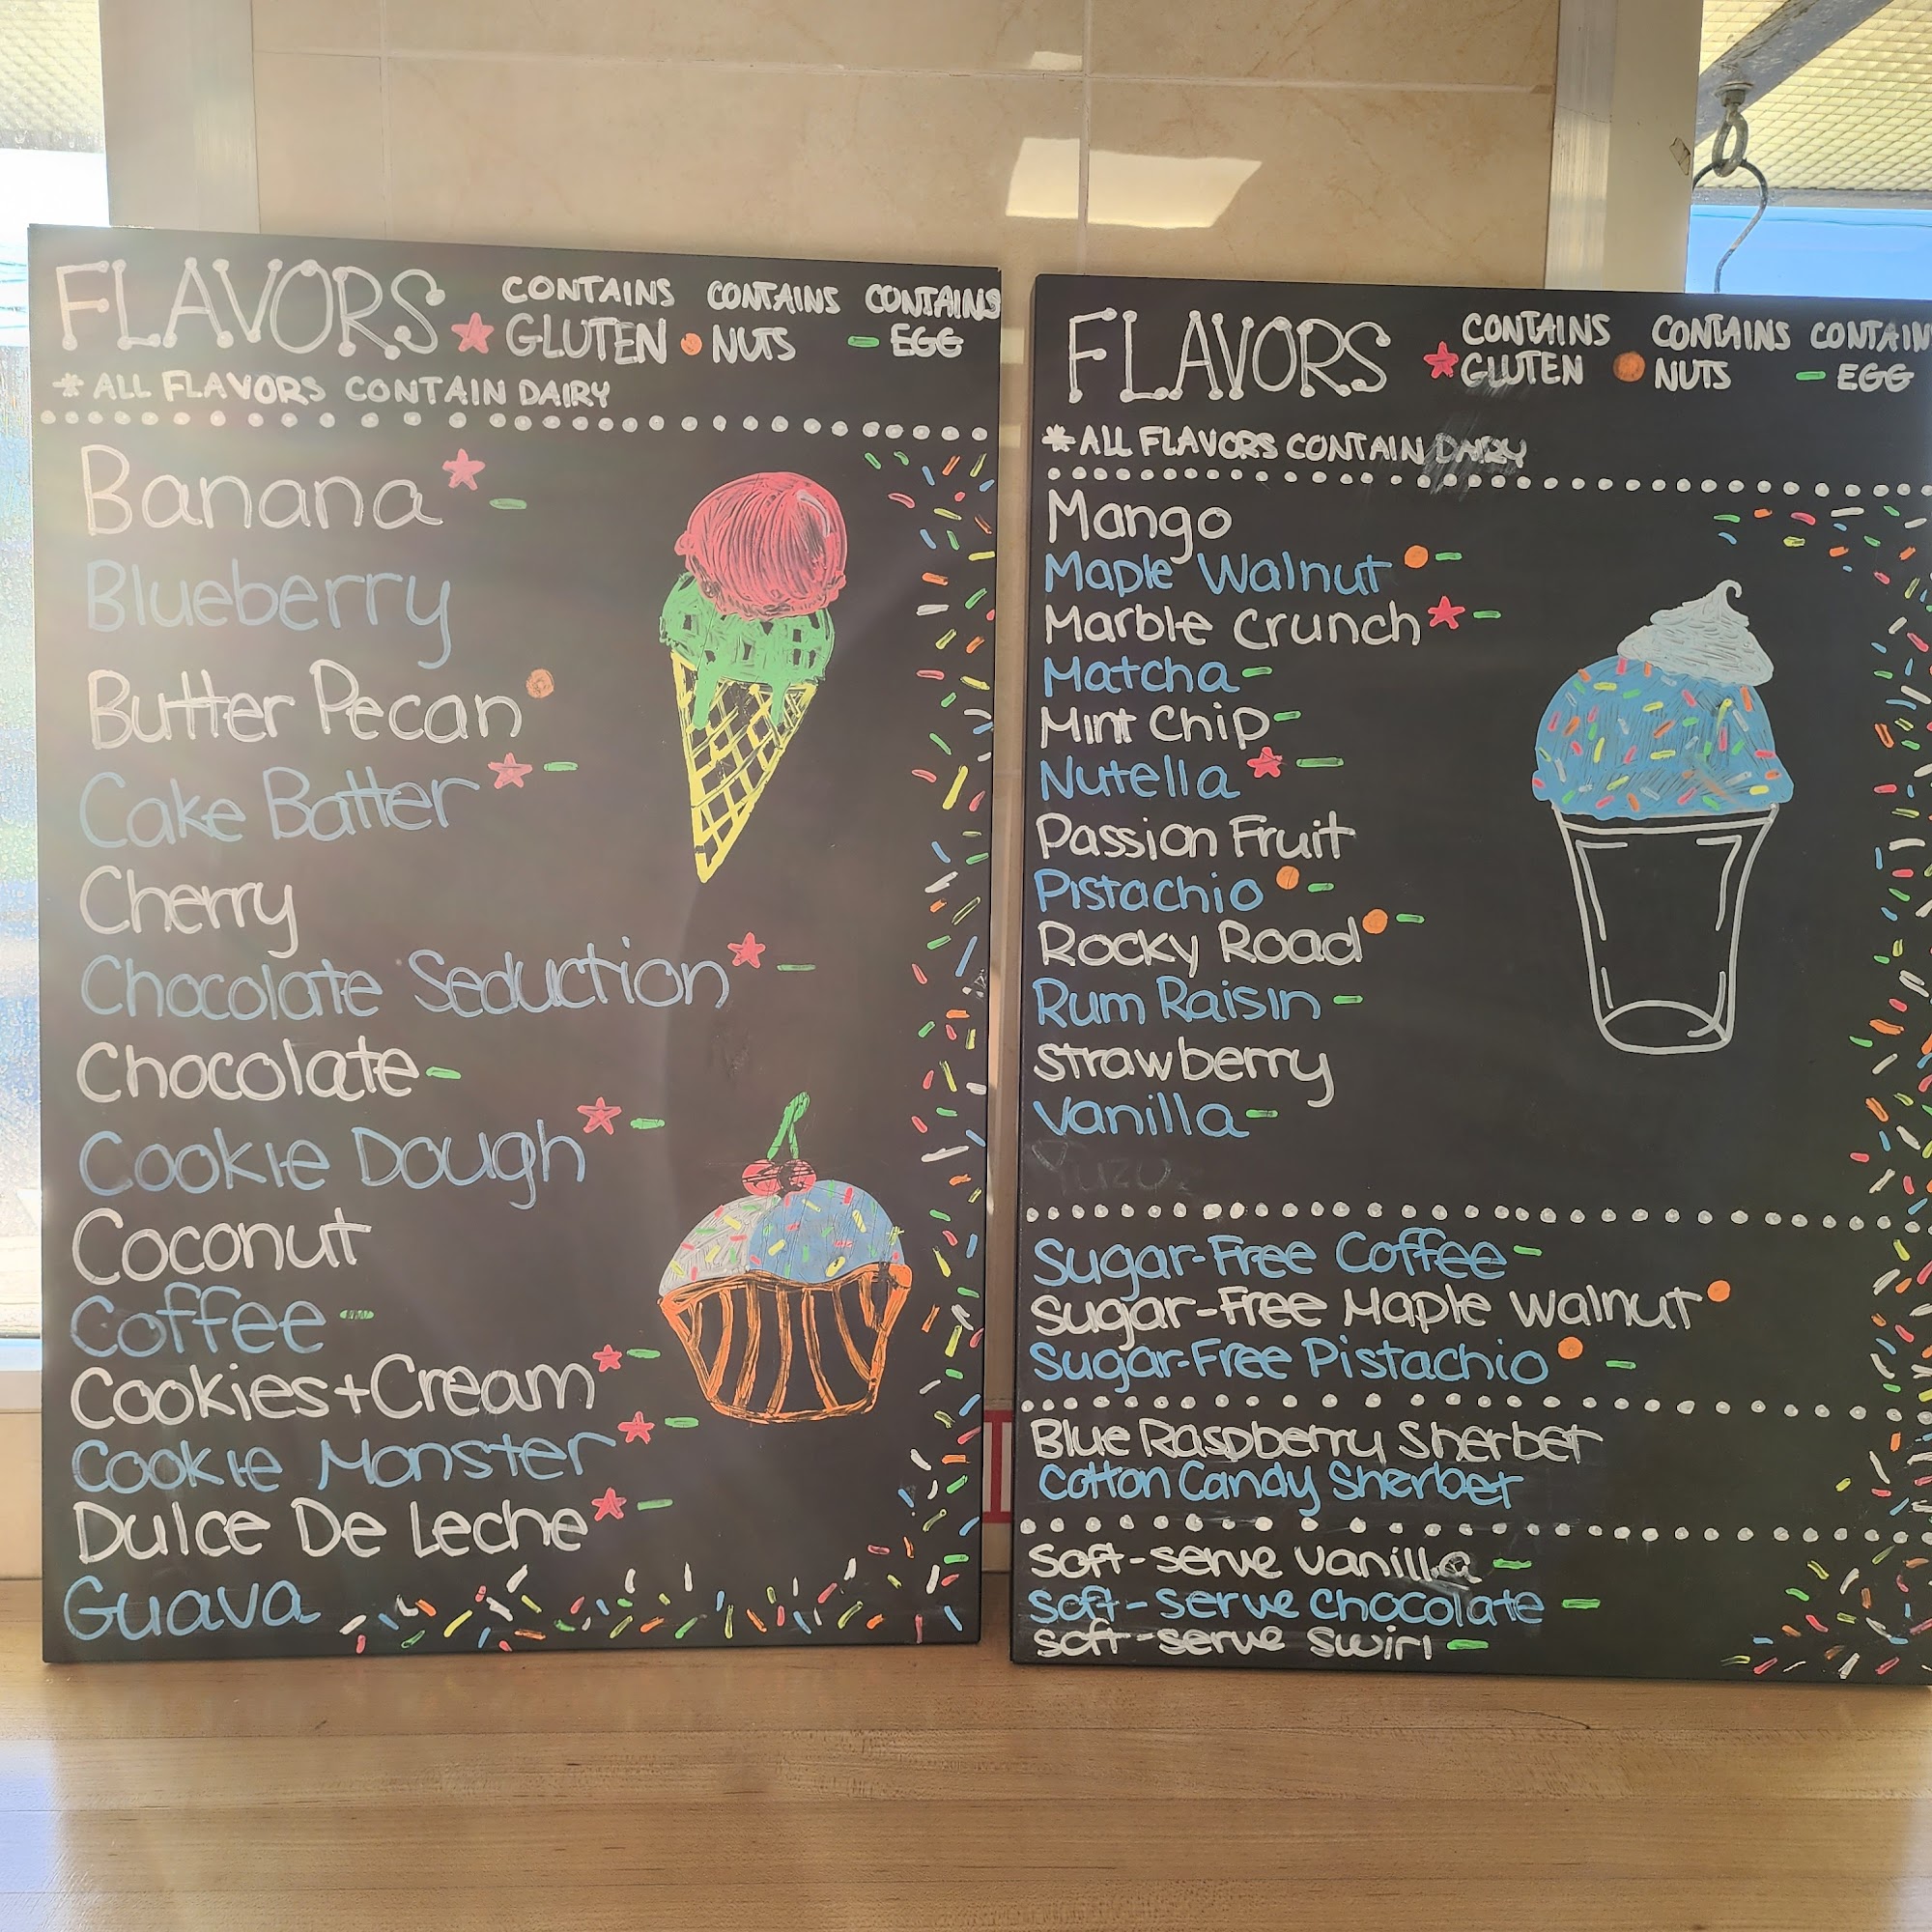 FLAVORS
CONTAINS GLUTEN
CONTAINS NUTS
CONTAINS EGG
*ALL FLAVORS CONTAIN DAIRY
Banana
Blueberry
Butter Pecan
Cake Batter
Cherry
Chocolate Seduction
Chocolate
Cookie Dough
Coconut
Coffee
Cookies+Cream
Cookie Monster
Dulce De Leche
Guava
FLAVORS
CONTAINS GLUTEN
CONTAINS NUTS
CONTAIN EGG
*ALL FLAVORS CONTAIN DAIRY
Mango
Maple Walnut
Marble Crunch
Matcha
Mint Chip
Nutella
Passion Fruit
Pistachio
Rocky Road
Rum Raisin
Strawberry
Vanilla
Yuzu
Sugar-Free Coffee
Sugar-Free Maple Walnut
Sugar-Free Pistachio
Blue Raspberry Sherbet
Cotton Candy Sherbet
Soft-serve Vanilla
Soft-serve Chocolate
Soft-serve Swirl